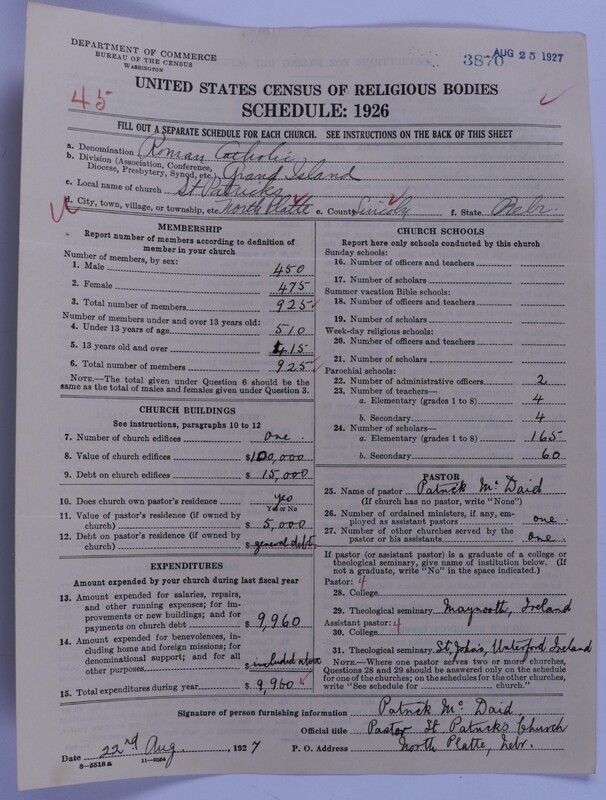 DEPARTMENT OF COMMERCE
BUREAU OF THE CENSUS
WASHINGTON
3870 AUG 25 1927
45
UNITED STATES CENSUS OF RELIGIOUS BODIES
SCHEDULE: 1926
FILL OUT A SEPARATE SCHEDULE FOR EACH CHURCH. SEE INSTRUCTIONS ON THE BACK OF THIS SHEET
a. Denomination Roman Catholic
b. Division (Association, Conference, Diocese, Presbytery, Synod, etc.) Grand Island
c. Local name of church St Patricks
d. City, town, village, or township, etc. North Platte e. County Lincoln f. State Nebr.
MEMBERSHIP
Report number of members according to definition of member in your church
Number of members, by sex:
1. Male 450
2. Female 475
3. Total number of members 925
Number of members under and over 13 years old:
4. Under 13 years of age 510
5. 13 years old and over 415
6. Total number of members 925
NOTE.—The total given under Question 6 should be
same as the total of males and females given under Question 3.
CHURCH BUILDINGS
See instructions, paragraphs 10 to 12
7. Number of church edifices one
8. Value of church edifices $100,000
9. Debt on church edifices $15,000
10. Does church own pastor's residence yes
Yes or No
11. Value of pastor's residence (if owned by
church) $5,000
12. Debt on pastor's residence (if owned by
church) $general debt
EXPENDITURES
Amount expended by your church during last fiscal year
13. Amount expended for salaries, repairs,
and other running expenses; for im-
provements or new buildings; and for
payments on church debt $9,960
14. Amount expended for benevolences,
including home and foreign missions; for
denominational support; and for all
other purposes $included above
15. Total expenditures during year $9,960
CHURCH SCHOOLS
Report here only schools conducted by this church
Sunday schools:
16. Number of officers and teachers
17. Number of scholars
Summer vacation Bible schools:
18. Number of officers and teachers
19. Number of scholars
Week-day religious schools:
20. Number of officers and teachers
21. Number of scholars
Parochial schools:
22. Number of administrative officers 2
23. Number of teachers—
a. Elementary (grades 1 to 8) 4
b. Secondary 4
24. Number of scholars—
a. Elementary (grades 1 to 8) 165
b. Secondary 60
PASTOR
25. Name of pastor Patrick Mc Daid
(If church has no pastor, write "None")
26. Number of ordained ministers, if any, em-
ployed as assistant pastors one.
27. Number of other churches served by the
pastor or his assistants one.
If pastor (or assistant pastor) is a graduate of a college or
theological seminary, give name of institution below. (If
not a graduate, write "No" in the space indicated.)
Pastor: 4
28. College
29. Theological seminary Maynooth, Ireland
Assistant pastor: 4
30. College
31. Theological seminary St. John's, Waterford Ireland
NOTE.—Where one pastor serves two or more churches,
Questions 28 and 29 should be answered only on the schedule
for one of the churches; on the schedules for the other churches,
write "See schedule for church."
Signature of person furnishing information Patrick Mc Daid
Official title Pastor St Patricks Church
Date 22nd Aug., 1927 P. O. Address North Platte, Nebr.
8-5518a 11-9084